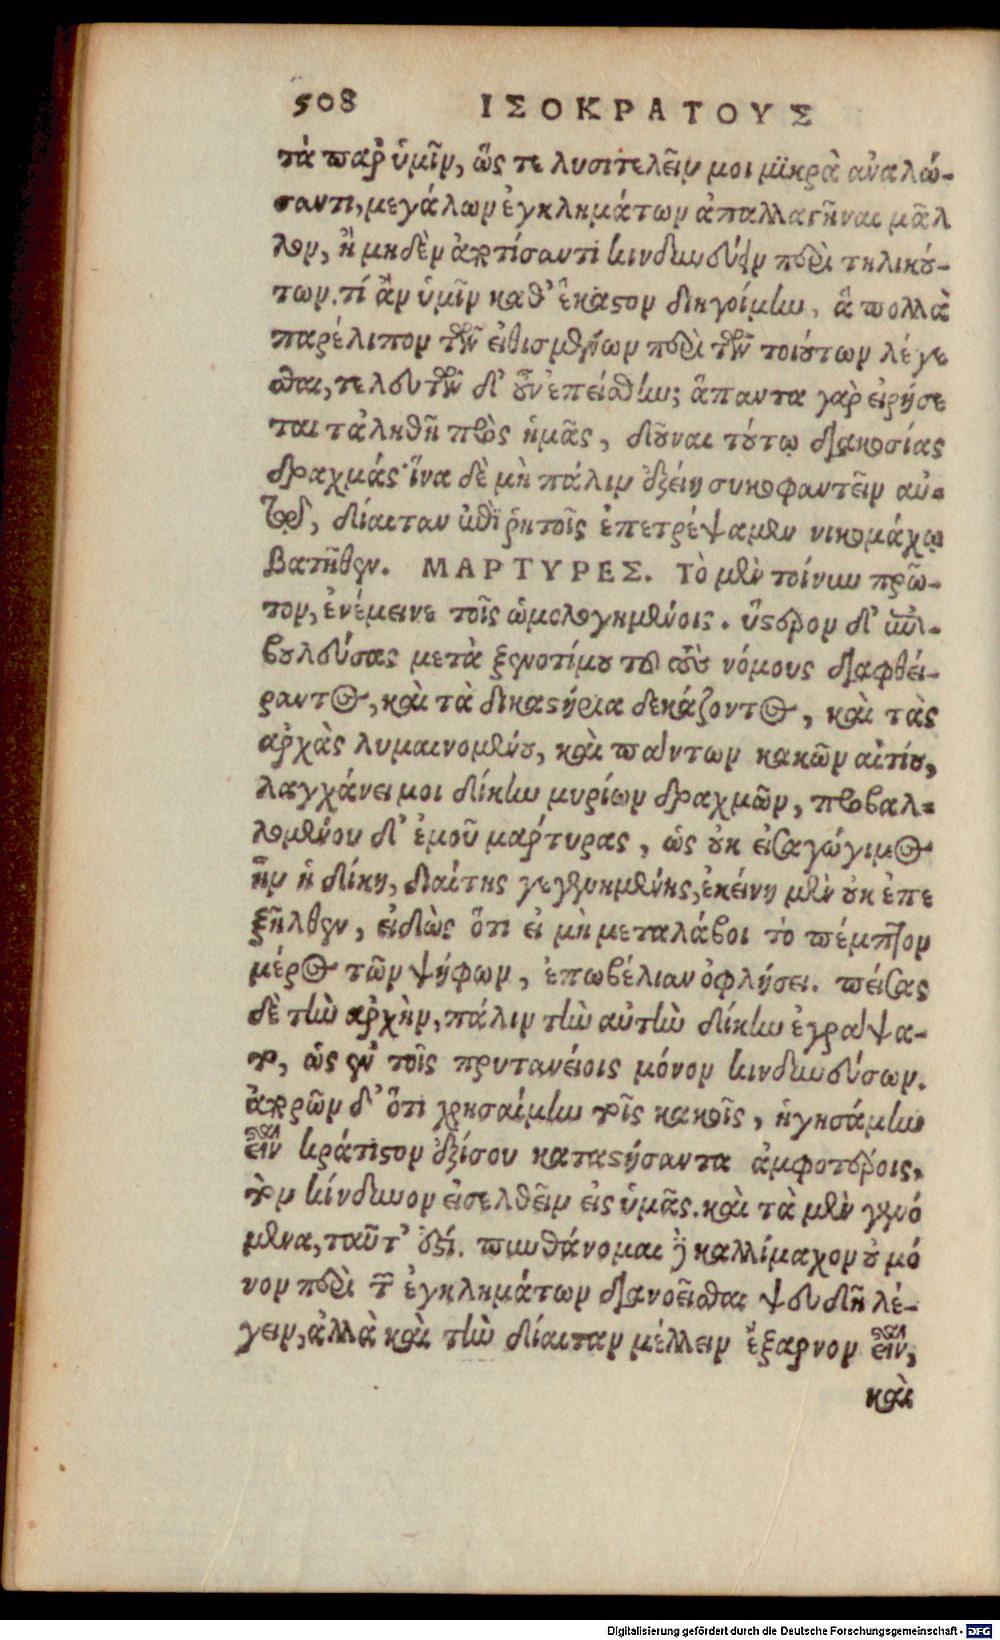 508 ΙΣΟΚΡΑΤΟΥΣ
τὰ παρ' ὑμῖν, ὥς τε λυσιτελεῖν μοι μικρὰ ἀναλώ-
σαντι, μεγάλων ἐγκλημάτων ἀπαλλαγῆναι μᾶλ
λον, ἢ μηδὲν ἀποτίσαντι κινδυνεύειν περὶ τηλικού-
των. τί ἂν ὑμῖν καθ' ἕκαστον διηγοίμην, ἃ πολλὰ
παρέλιπον τῶν εἰθισμένων περὶ τῶν τοιούτων λέγε
σθαι, τελευτῶν δ' οὖν ἐπείσθην; ἅπαντα γὰρ εἰρήσε
ται τἀληθῆ πρὸς ἡμᾶς, δοῦναι τούτῳ διακοσίας
δραχμάς· ἵνα δὲ μὴ πάλιν ἐξείη συκοφαντεῖν αὐ-
τῷ, δίαιταν ἐπὶ ῥητοῖς ἐπετρέψαμεν νικομάχῳ
Βατῆθεν. ΜΑΡΤΥΡΕΣ. Τὸ μὲν τοίνυν πρῶ-
τον, ἐνέμεινε τοῖς ὡμολογημένοις. ὕστερον δ' ἐπι-
βουλεύσας μετὰ ξενοτίμου τοῦ τοὺς νόμους διαφθεί-
ραντος, καὶ τὰ δικαστήρια δεκάζοντος, καὶ τὰς
ἀρχὰς λυμαινομένου, καὶ πάντων κακῶν αἰτίου,
λαγχάνει μοι δίκην μυρίων δραχμῶν, προβαλ-
λομένου δ' ἐμοῦ μάρτυρας, ὡς οὐκ εἰσαγώγιμος
ἦν ἡ δίκη, διαίτης γεγενημένης, ἐκείνη μὲν οὐκ ἐπε
ξῆλθεν, εἰδὼς ὅτι εἰ μὴ μεταλάβοι τὸ πέμπτον
μέρος τῶν ψήφων, ἐπωβέλιαν ὀφλήσει. πείσας
δὲ τὴν ἀρχὴν, πάλιν τὴν αὐτὴν δίκην ἐγράψα-
το, ὡς ἐν τοῖς πρυτανείοις μόνον κινδυνεύσων.
ἀπορῶν δ' ὅτι χρησαίμην τοῖς κακοῖς, ἡγησάμην
εἶναι κράτιστον ἐξίσου καταστήσαντα ἀμφοτέροις,
τὸν κίνδυνον εἰσελθεῖν εἰς ὑμᾶς. καὶ τὰ μὲν γενό
μενα, ταῦτ' ἐστί. πυνθάνομαι δὲ καλλίμαχον οὐ μό
νον περὶ τῶν ἐγκλημάτων διανοεῖσθαι ψευδῆ λέ-
γειν, ἀλλὰ καὶ τὴν δίαιταν μέλλειν ἔξαρνον εἶναι,
καὶ
Digitalisierung gefördert durch die Deutsche Forschungsgemeinschaft - DFG